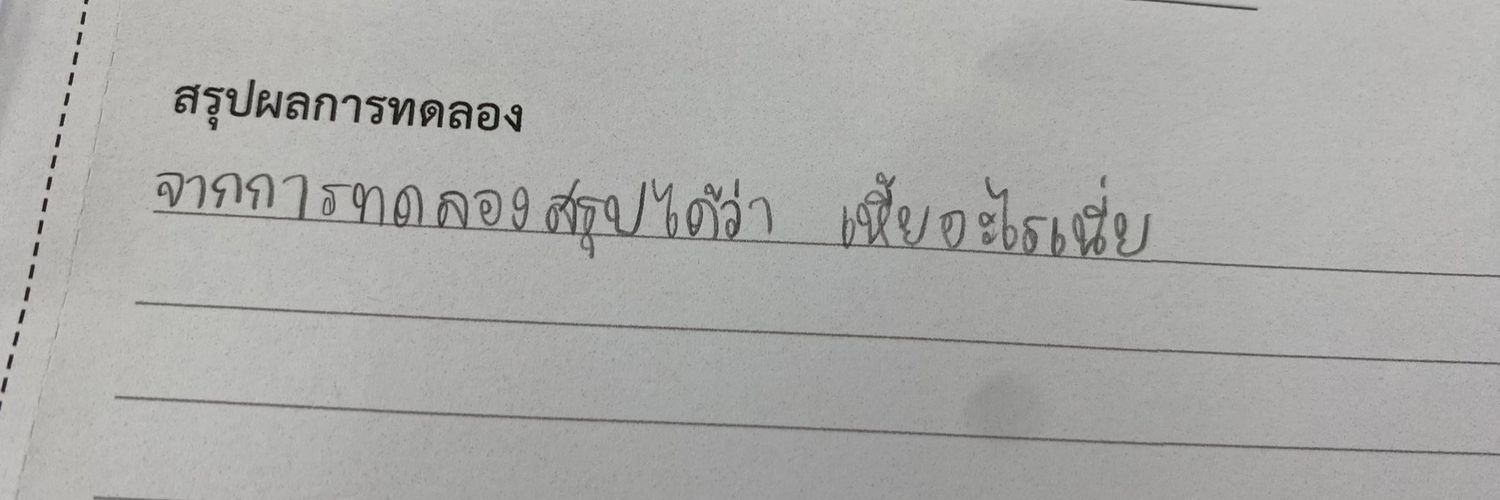 สรุปผลการทดลอง
จากการทดลองสรุปได้ว่า เหี้ยอะไรเนี่ย